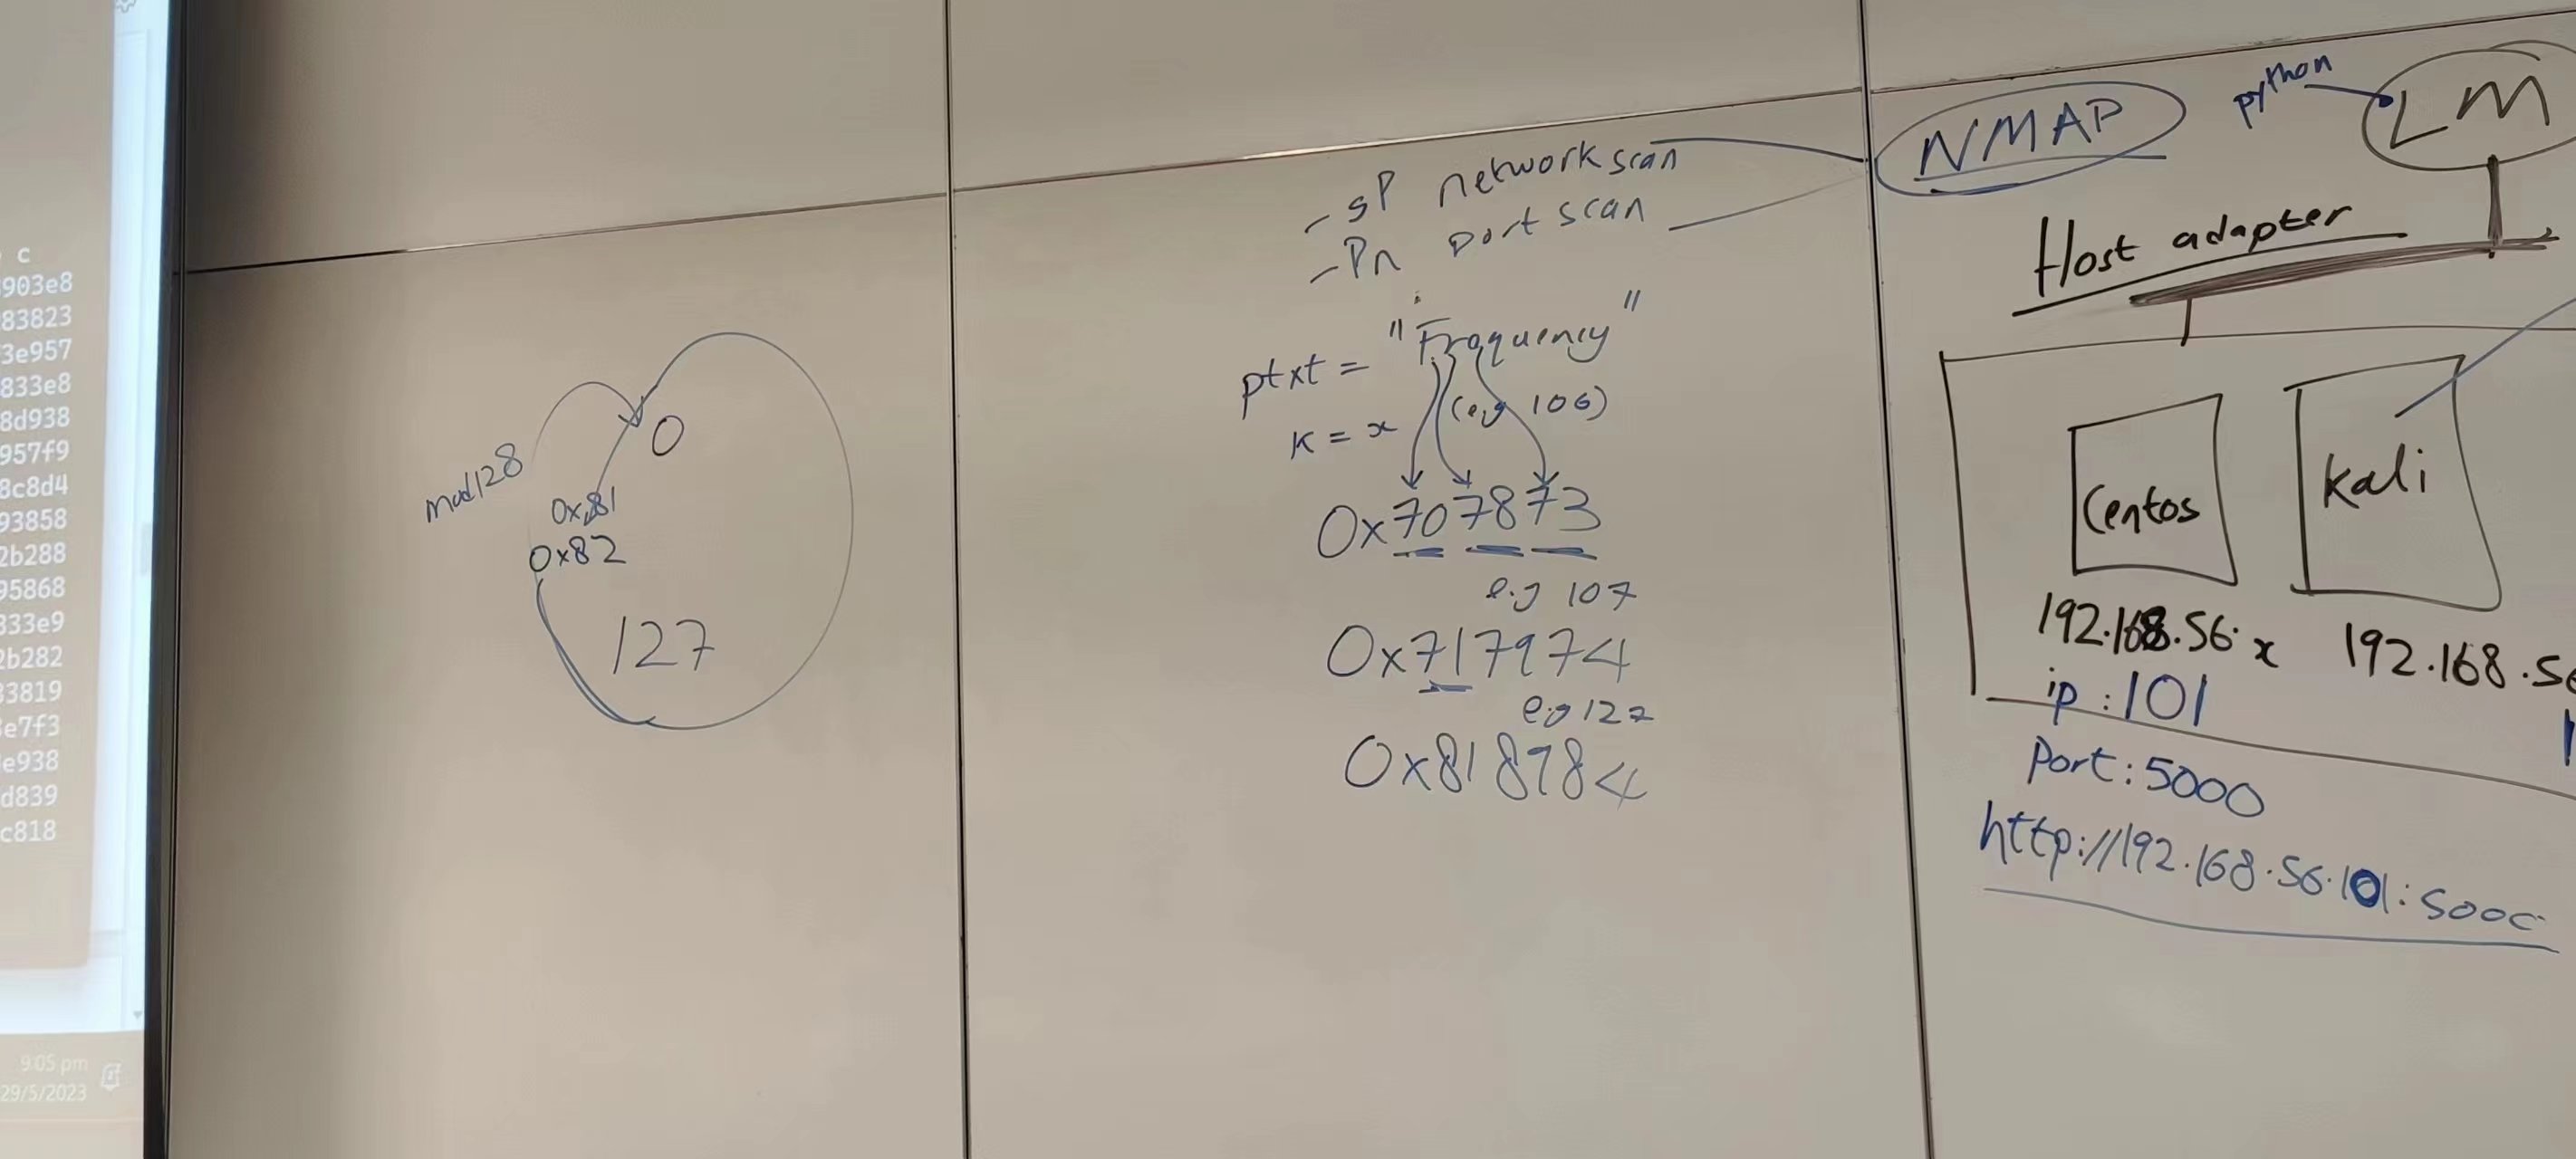 c
903e8
83823
3e957
833e8
8d938
957f9
8c8d4
93858
2b288
95868
333e9
2b282
33819
e7f3
e938
d839
c818
9:05 pm
29/5/2023
mod128
0
0x81
0x82
127
-sP network scan
-Pn port scan
ptxt = "Frequency"
K = x (e.g 106)
0x707873
e.g 107
0x717974
e.g 127
0x818984
NMAP
python
LM
Host adapter
Centos
Kali
192.168.56.x
192.168.56
ip:101
Port:5000
http://192.168.56.101:5000